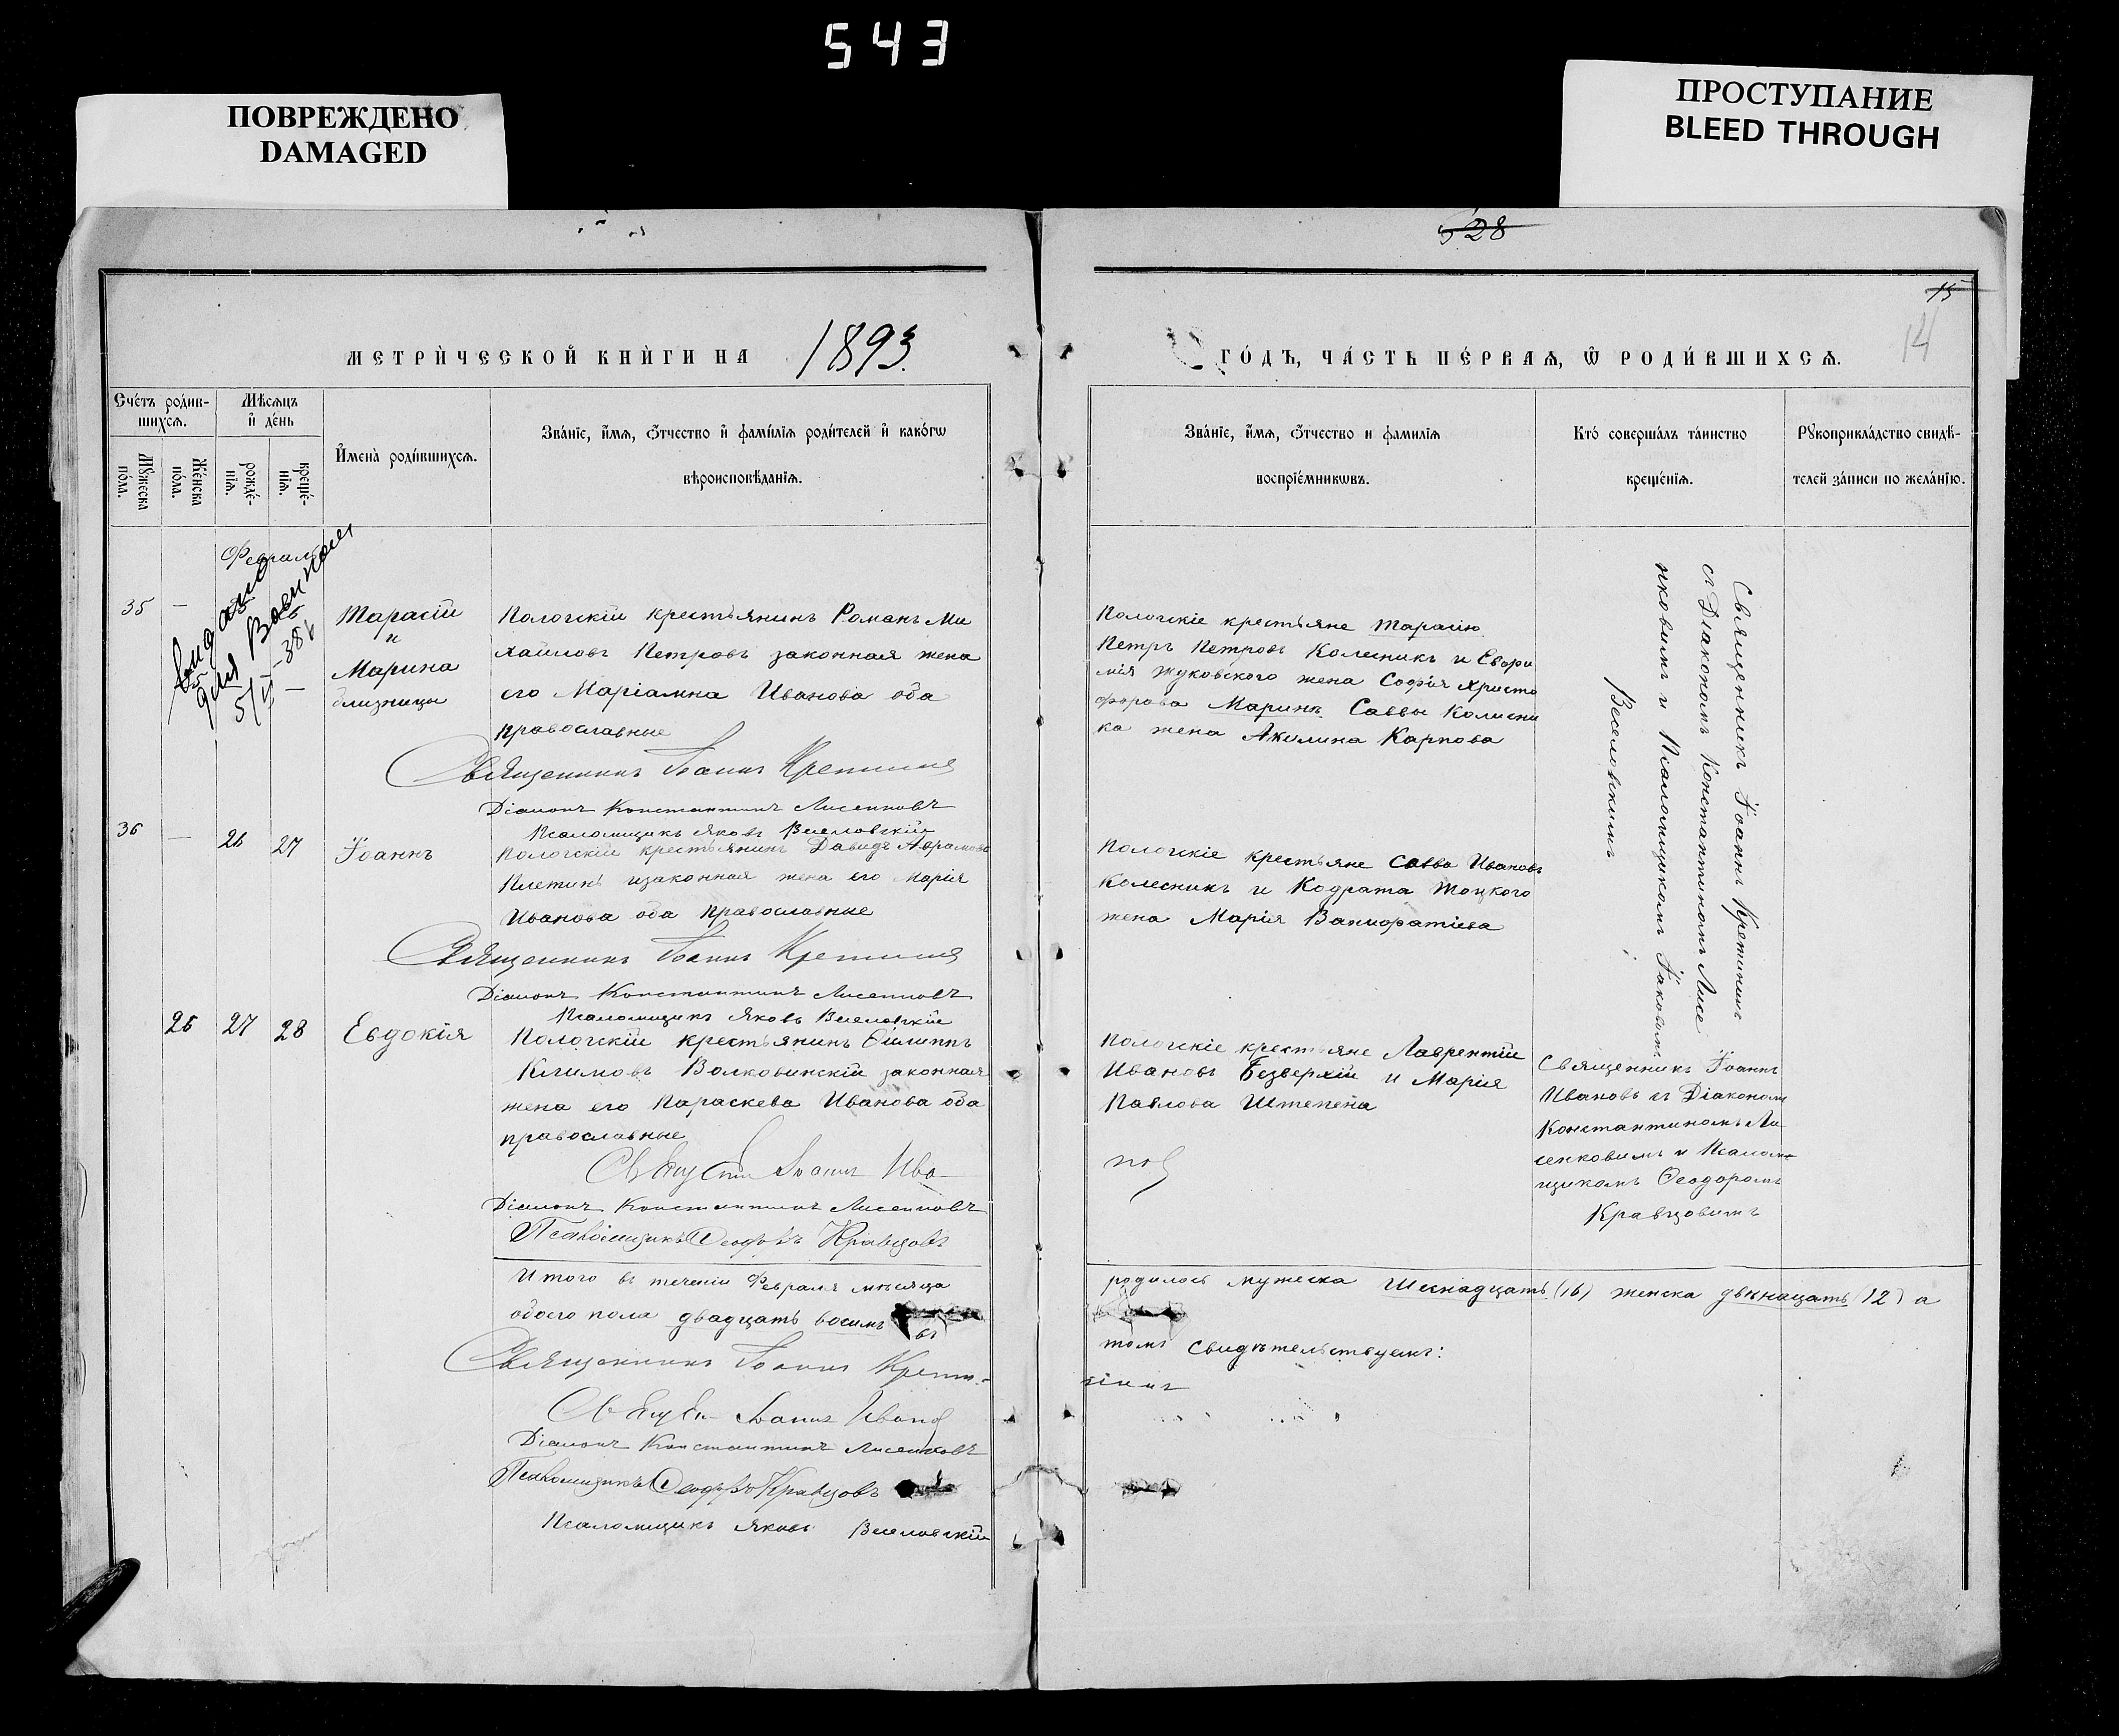 543
ПОВРЕЖДЕНО
DAMAGED
ПРОСТУПАНИЕ
BLEED THROUGH
528
15
14
МЕТРИ́ЧЕСКОЙ КНИ́ГИ НА 1893.
ГО́ДЪ, ЧА́СТЬ ПЕ́РВАѦ, Ѡ РОДИ́ВШИХСѦ.
Сче́тъ роди́в-
шихсѧ.
Мꙋжеска
по́ла.
Же́нска
по́ла.
Мѣ́сѧцъ
и҆ де́нь
рожде́-
нїѧ.
креще́-
нїѧ.
И҆мена̀ роди́вшихсѧ.
Зва́нїе, и҆́мѧ, ѻ҆́тчество и҆ фами́лїѧ роди́телей и҆ како́гѡ
вѣроисповѣ́данїѧ.
Зва́нїе, и҆́мѧ, ѻ҆́тчество и фамилїѧ
воспрїе́мникѡвъ.
Кто́ соверша́лъ та́инство
креще́нїѧ.
Рꙋкоприкла́дство свидѣ́-
телей за́писи по жела́нїю.
Февраль
35 —
Тарасій
и
Марина
близнецы
Пологскій крестьянинъ Романъ Ми
хайловъ Петровъ законная жена
его Маріамна Иванова оба
православные
Священникъ Іоаннъ Кретининъ
Діаконъ Константинъ Лисенковъ
Псаломщикъ Яковъ Веселовскій
Пологскіе крестьяне Тарасію
Петръ Петровъ Колесникъ и Евфи
мія Жуковскаго жена Софія Христо
форова Маринѣ Саввы Колесни
ка жена Акилина Карпова
Священникъ Іоаннъ Кретининъ
съ Діакономъ Константиномъ Лисе
нковымъ и Псаломщикомъ Іаковымъ
Веселовскимъ
36 — 26 27 Іоаннъ
Пологскій крестьянинъ Давидъ Аврамовъ
Плетинь и законная жена его Марія
Иванова оба православные
Священникъ Іоаннъ Кретининъ
Діаконъ Константинъ Лисенковъ
Псаломщикъ Яковъ Веселовскій
Пологскіе крестьяне Савва Ивановъ
Колесникъ и Кодрата Тоцкого
жена Марія Ванифатіева
26 27 28 Евдокія
Пологскій крестьянинъ Филиппъ
Климовъ Волковинскій законная
жена его Параскева Иванова оба
православные
Іоаннъ Ива
новъ
Діаконъ Константинъ Лисенковъ
Псаломщикъ Ѳеодоръ Кравцовъ
Пологскіе крестьяне Лаврентій
Ивановъ Безверхій и Марія
Павлова Штепена
Священникъ Іоаннъ
Ивановъ съ Діакономъ
Константиномъ Ли
сенковымъ и Псалом
щикомъ Ѳеодоромъ
Кравцовымъ
Итого въ теченіи Февраля мѣсяца родилось мужеска Шеснадцать (16) женска двѣнацать (12) а
обоего пола двадцать восемь въ
томъ свидѣтельствуемъ:
Священникъ Іоаннъ Крети-
нинъ
Іоаннъ Ивановъ
Діаконъ Константинъ Лисенковъ
Псаломщикъ Ѳеодоръ Кравцовъ
Псаломщикъ Яковъ Веселовскій